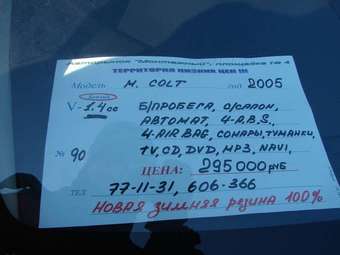 Авторынок "Молотковый", площадка № 4
ТЕРРИТОРИЯ НИЗКИХ ЦЕН !!!
Модель M. COLT год 2005
Бензин
V- 1.4 cc Б/ПРОБЕГА, О/САЛОН,
АВТОМАТ, 4-A.B.S.,
4-AIR BAG, СОНАРЫ, ТУМАНКИ,
№ 90 TV, CD, DVD, MP3, NAVI,
ЦЕНА: 295000 РУБ
ТЕЛ 77-11-31, 606-366
НОВАЯ ЗИМНЯЯ РЕЗИНА 100%